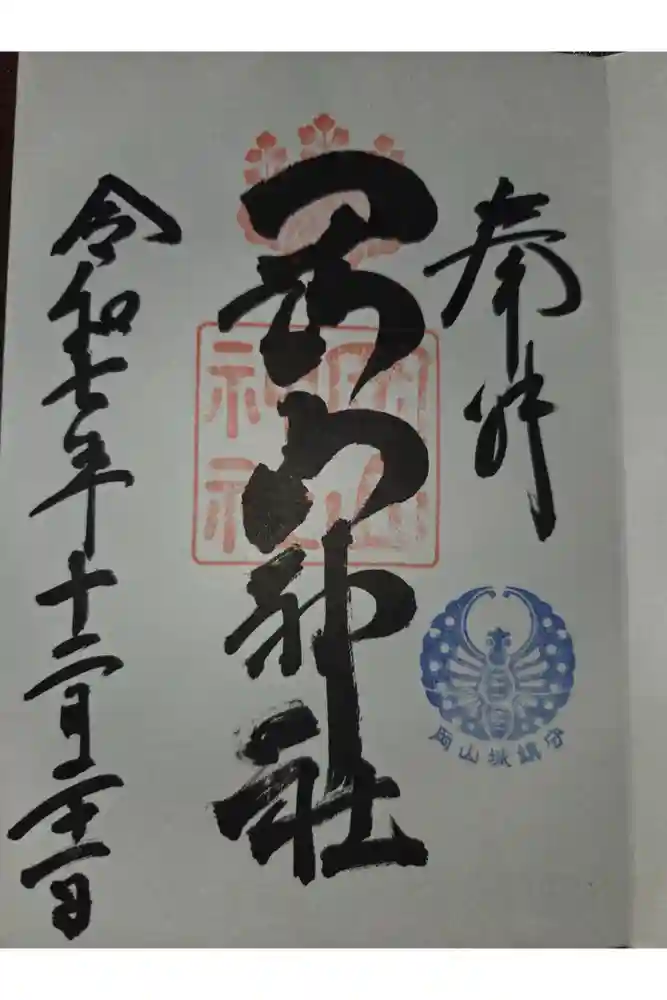 奉拝
岡山神社
岡山
神社
岡山城鎮守
令和七年十二月二十一日